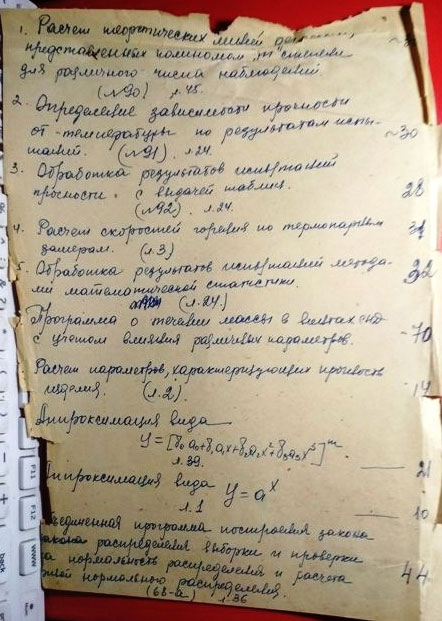 1. Расчет теоретических линий
представленных полиномом "m" степени
для различного числа наблюдений
(№90) л. 45.
2. Определение зависимости прочности
от температуры по результатам испы- ~30
таний. (№91) л.24.
3. Обработка результатов испытаний
прочности с выдачей таблиц. 28
(№92) л.24.
4. Расчет скоростей горения по термопарным
замерам. (л.3)
5. Обработка результатов испытаний метода-
ми математической статистики.
(л.24.)
Программа о течении массы в винтах
с учетом влияния различных параметров. ~70
Расчет параметров, характеризующих прочность
изделия. (л.2) 14
Аппроксимация вида
y = [b₀a₀+b₁a₁x+b₂a₂x²+b₃a₃x³]ᵐ
л.39. 21
Аппроксимация вида
y = aˣ
л.1 10
единенная программа построения закона
закона распределения выборки и проверки
на нормальность распределения и расчета 44
нормального распределения.
(68-а) л.36
F11
F12
www
back